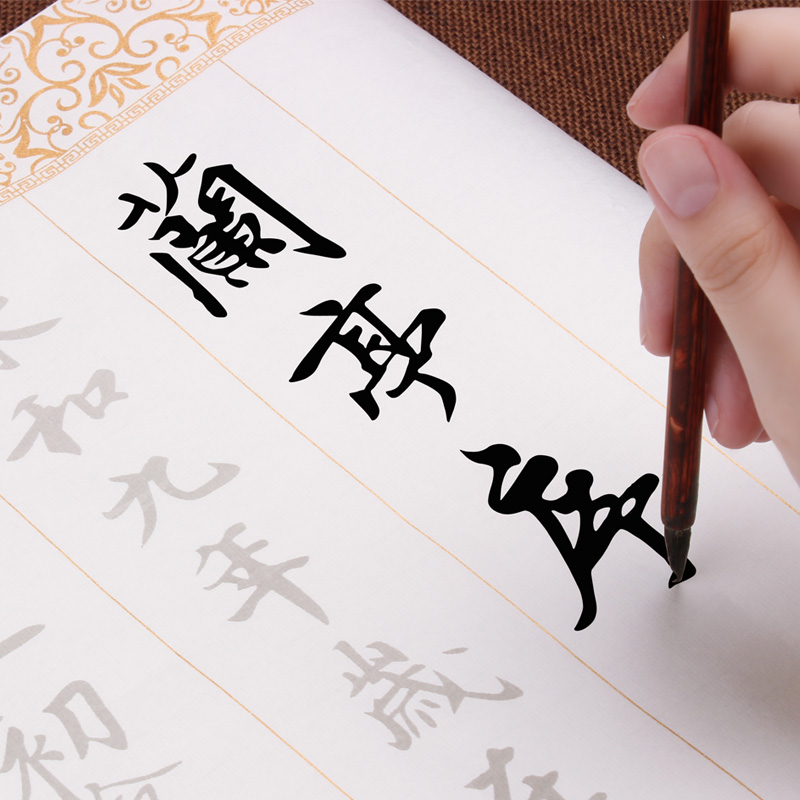 蘭亭序
永和九年歲在
初